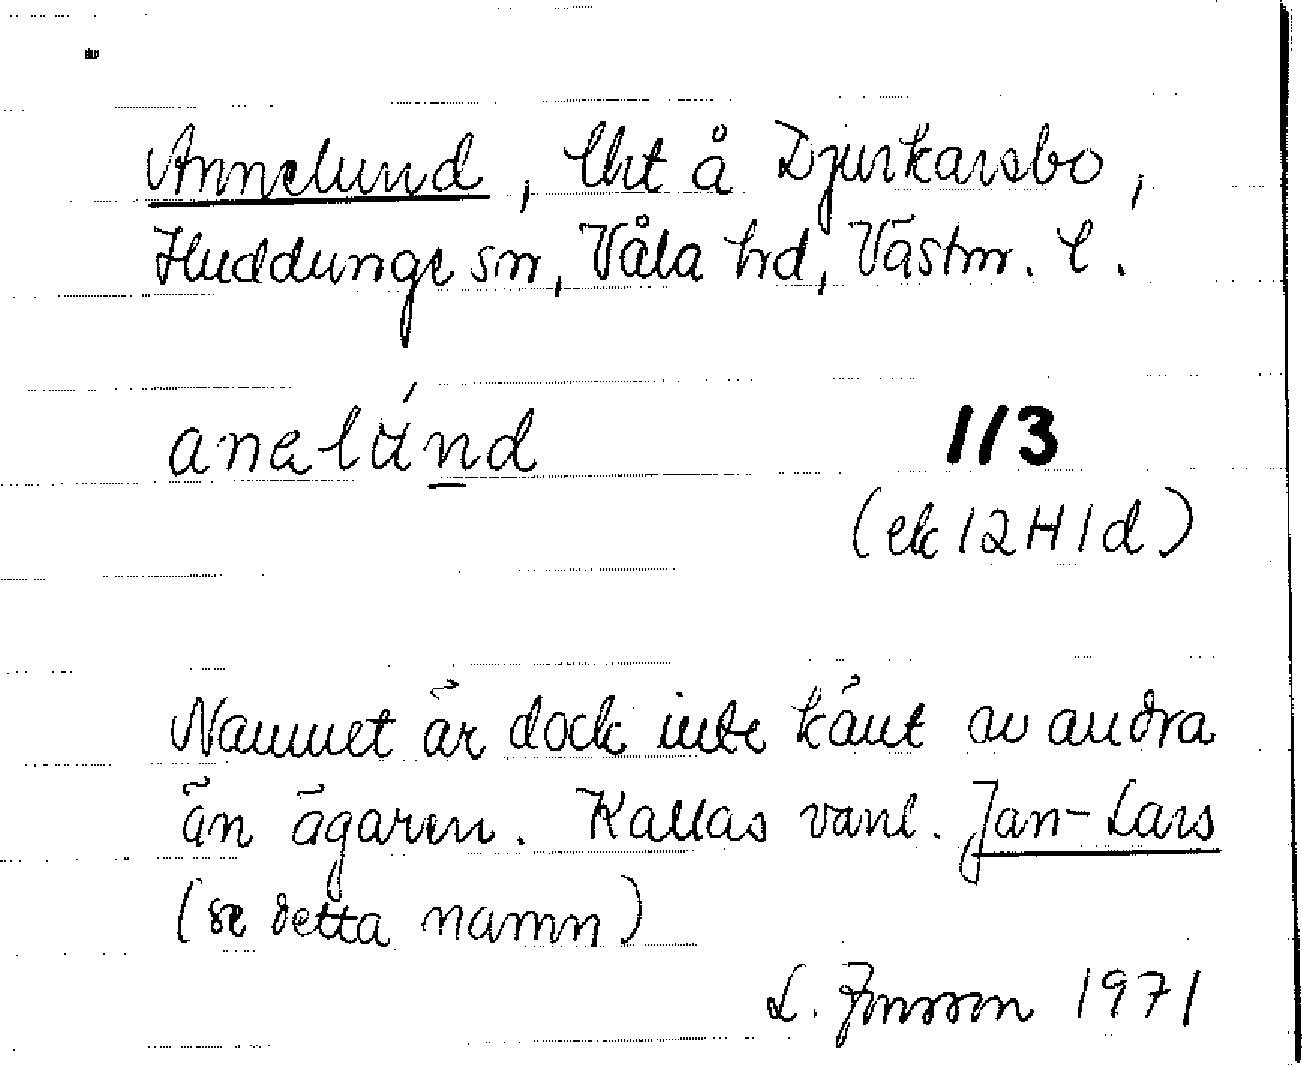 Annelund, lht å Djurkarsbo,
Huddunge sn, Våla hd, Västm. l.
anelúnd
113
(ek 12H1d)
Namnet är dock inte känt av andra
än ägaren. Kallas vanl. Jan-Lars
(se detta namn)
L. Jonsson 1971